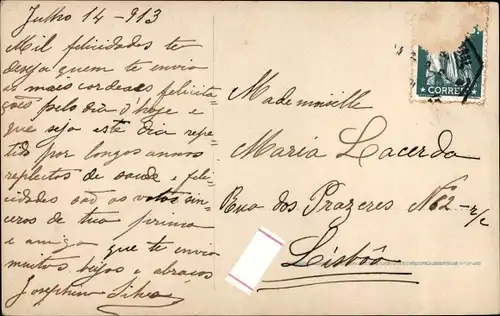 Julho 14 - 913
Mil felicidades te
deseja quem te envia
as mais cordeaes felicita-
ções pelo dia d'hoje e
que seja este dia repe-
tido por longos annos
replectos de saude e feli-
cidades são os votos sin-
ceros de tua prima
e amiga que te envia
muitos beijos e abraços
Josephina Silva
CORREIO
Mademoiselle
Maria Lacerda
Rua dos Prazeres Nº 62 - r/c
Lisbôa